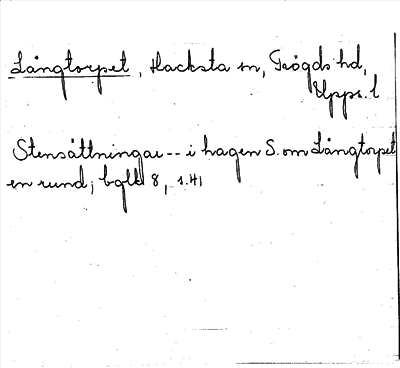 Långtorpet, Hacksta sn, Trögds hd,
Upps. l
Stensättningar -- i hagen S. om Långtorpet
en rund; bglt 8, s. 41